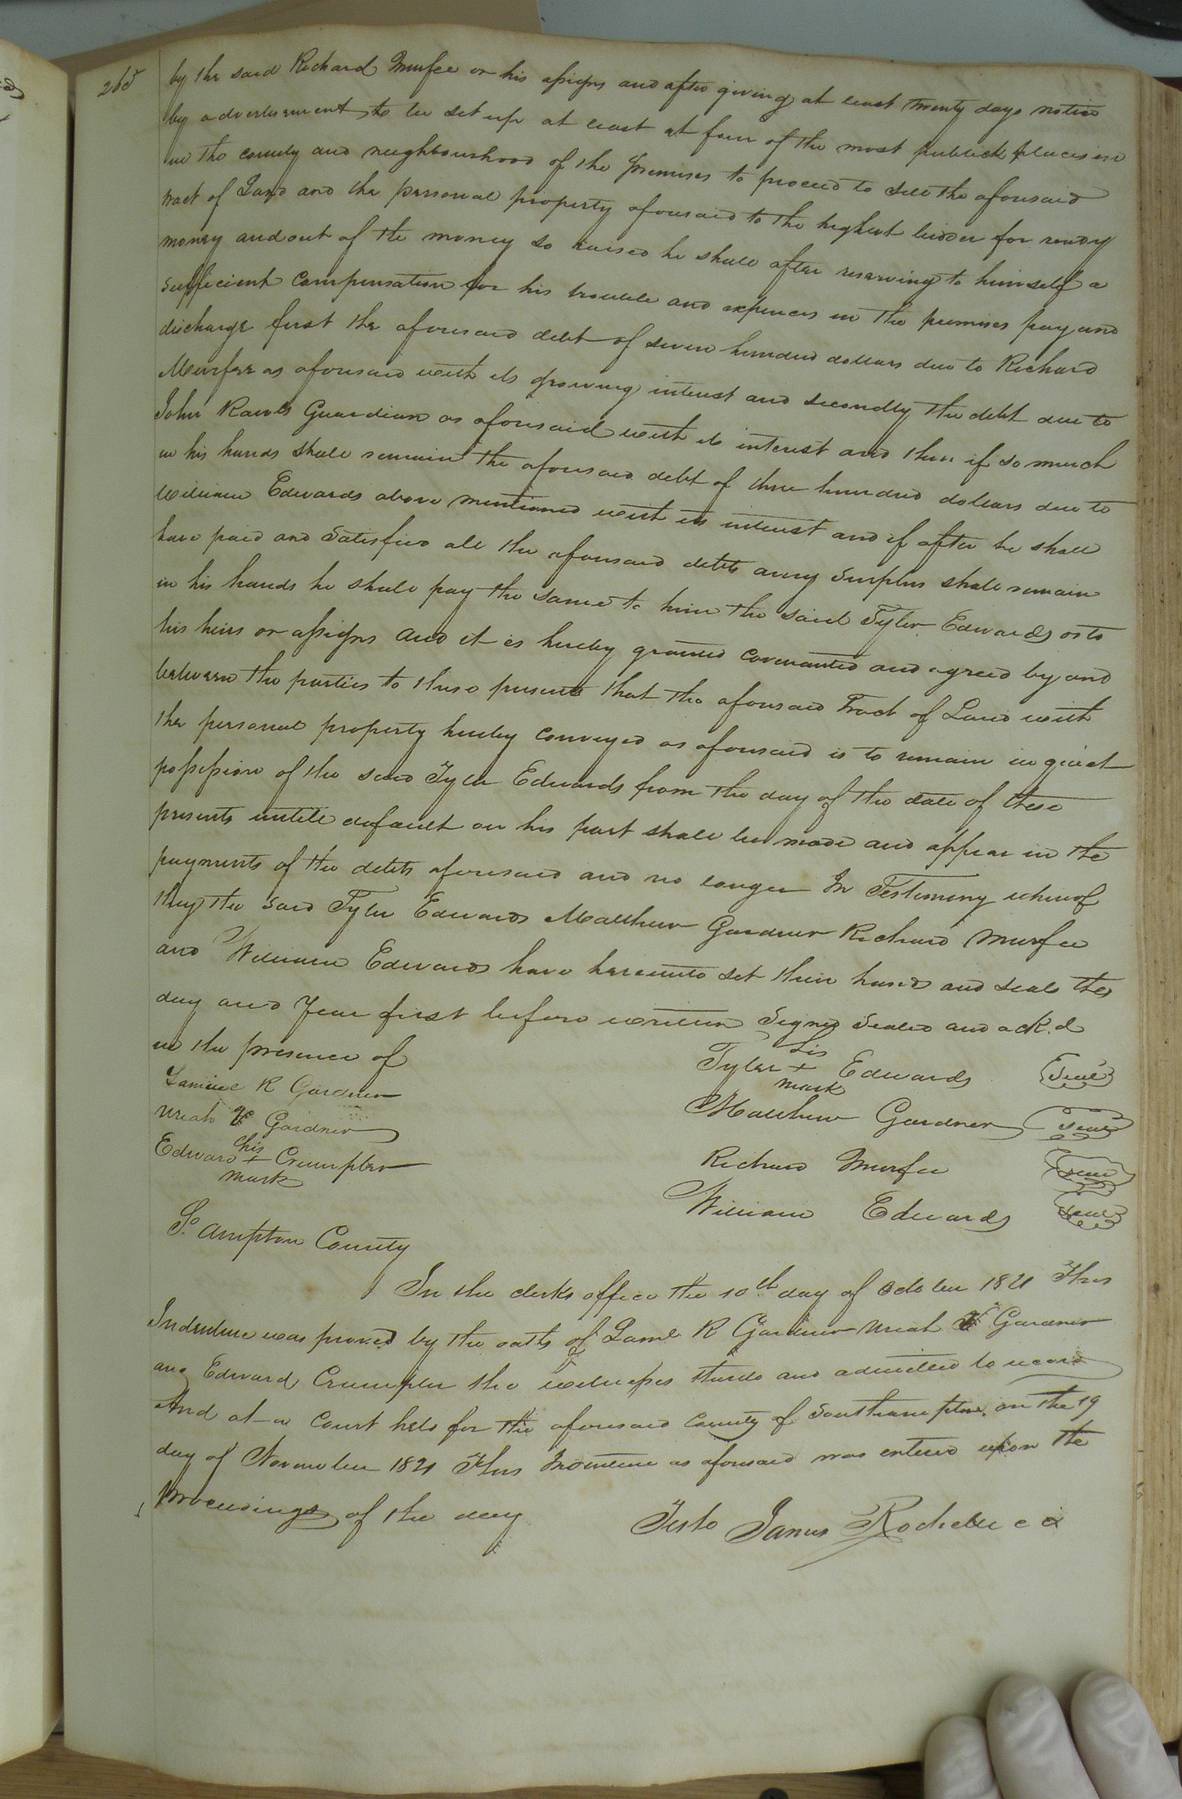 265
by the said Richard Murfee or his assigns and after giving at least twenty days notice
by advertisement to be set up at least at four of the most publick places in
in the county and neighbourhood of the premises to proceed to sell the aforesaid
tract of Land and the personal property aforesaid to the highest bidder for ready
money and out of the money so raised he shall after reserving to himself a
sufficient compensation for his trouble and expences in the premises pay and
discharge first the aforesaid debt of seven hundred dollars due to Richard
Murfee as aforesaid with its growing interest and secondly the debt due to
John Rawls Guardian as aforesaid with its interest and then if so much
in his hands shall remain the aforesaid debt of three hundred dollars due to
William Edwards above mentioned with its interest and if after he shall
have paid and satisfied all the aforesaid debts any surplus shall remain
in his hands he shall pay the same to him the said Tyler Edwards or to
his heirs or assigns And it is hereby granted covenanted and agreed by and
between the parties to these presents that the aforesaid Tract of Land with
the personal property hereby conveyed as aforesaid is to remain in quiet
possession of the said Tyler Edwards from the day of the date of these
presents untill default on his part shall be made and appear in the
payments of the debts aforesaid and no longer In Testimony whereof
they the said Tyler Edwards Matthew Gardner Richard Murfee
and William Edwards have hereunto set their hands and seals the
day and Year first before written Signed Sealed and ackd
in the presence of
Tyler his + mark Edwards Seal
Samuel R Gardner
Matthew Gardner Seal
Uriah Gardner
Edward his + mark Crumpler
Richard Murfee Seal
William Edwards Seal
So Ampton County
In the clerks office the 10th day of October 1821 This
Indenture was proved by the oaths of Saml R Gardner Uriah Gardner
and Edward Crumpler the witnesses thereto and admitted to record
And at a Court held for the aforesaid County of Southampton on the 19
day of November 1821 This Indenture as aforesaid was entered upon the
proceedings of the day
Teste James Rochelle c c